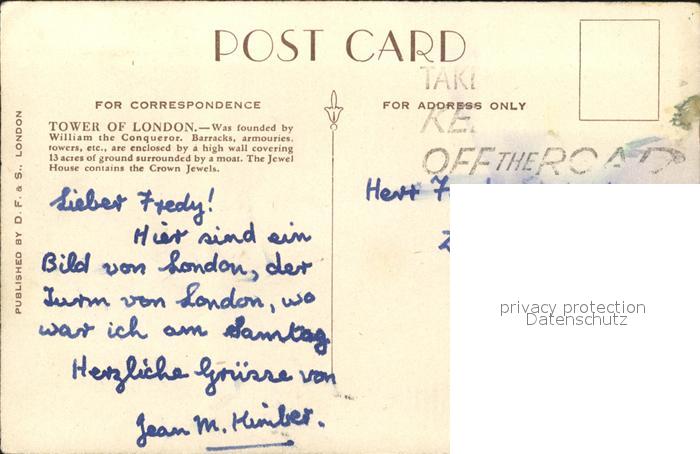 POST CARD
TAKE
OFF THE ROAD
FOR CORRESPONDENCE
FOR ADDRESS ONLY
TOWER OF LONDON.—Was founded by
William the Conqueror. Barracks, armouries,
towers, etc., are enclosed by a high wall covering
13 acres of ground surrounded by a moat. The Jewel
House contains the Crown Jewels.
PUBLISHED BY D. F. & S., LONDON
Lieber Fredy!
Hier sind ein
Bild von London, der
Turm von London, wo
war ich am Samtag.
Herzliche Grüsse von
Jean M. Kimber.
Herr
privacy protection
Datenschutz